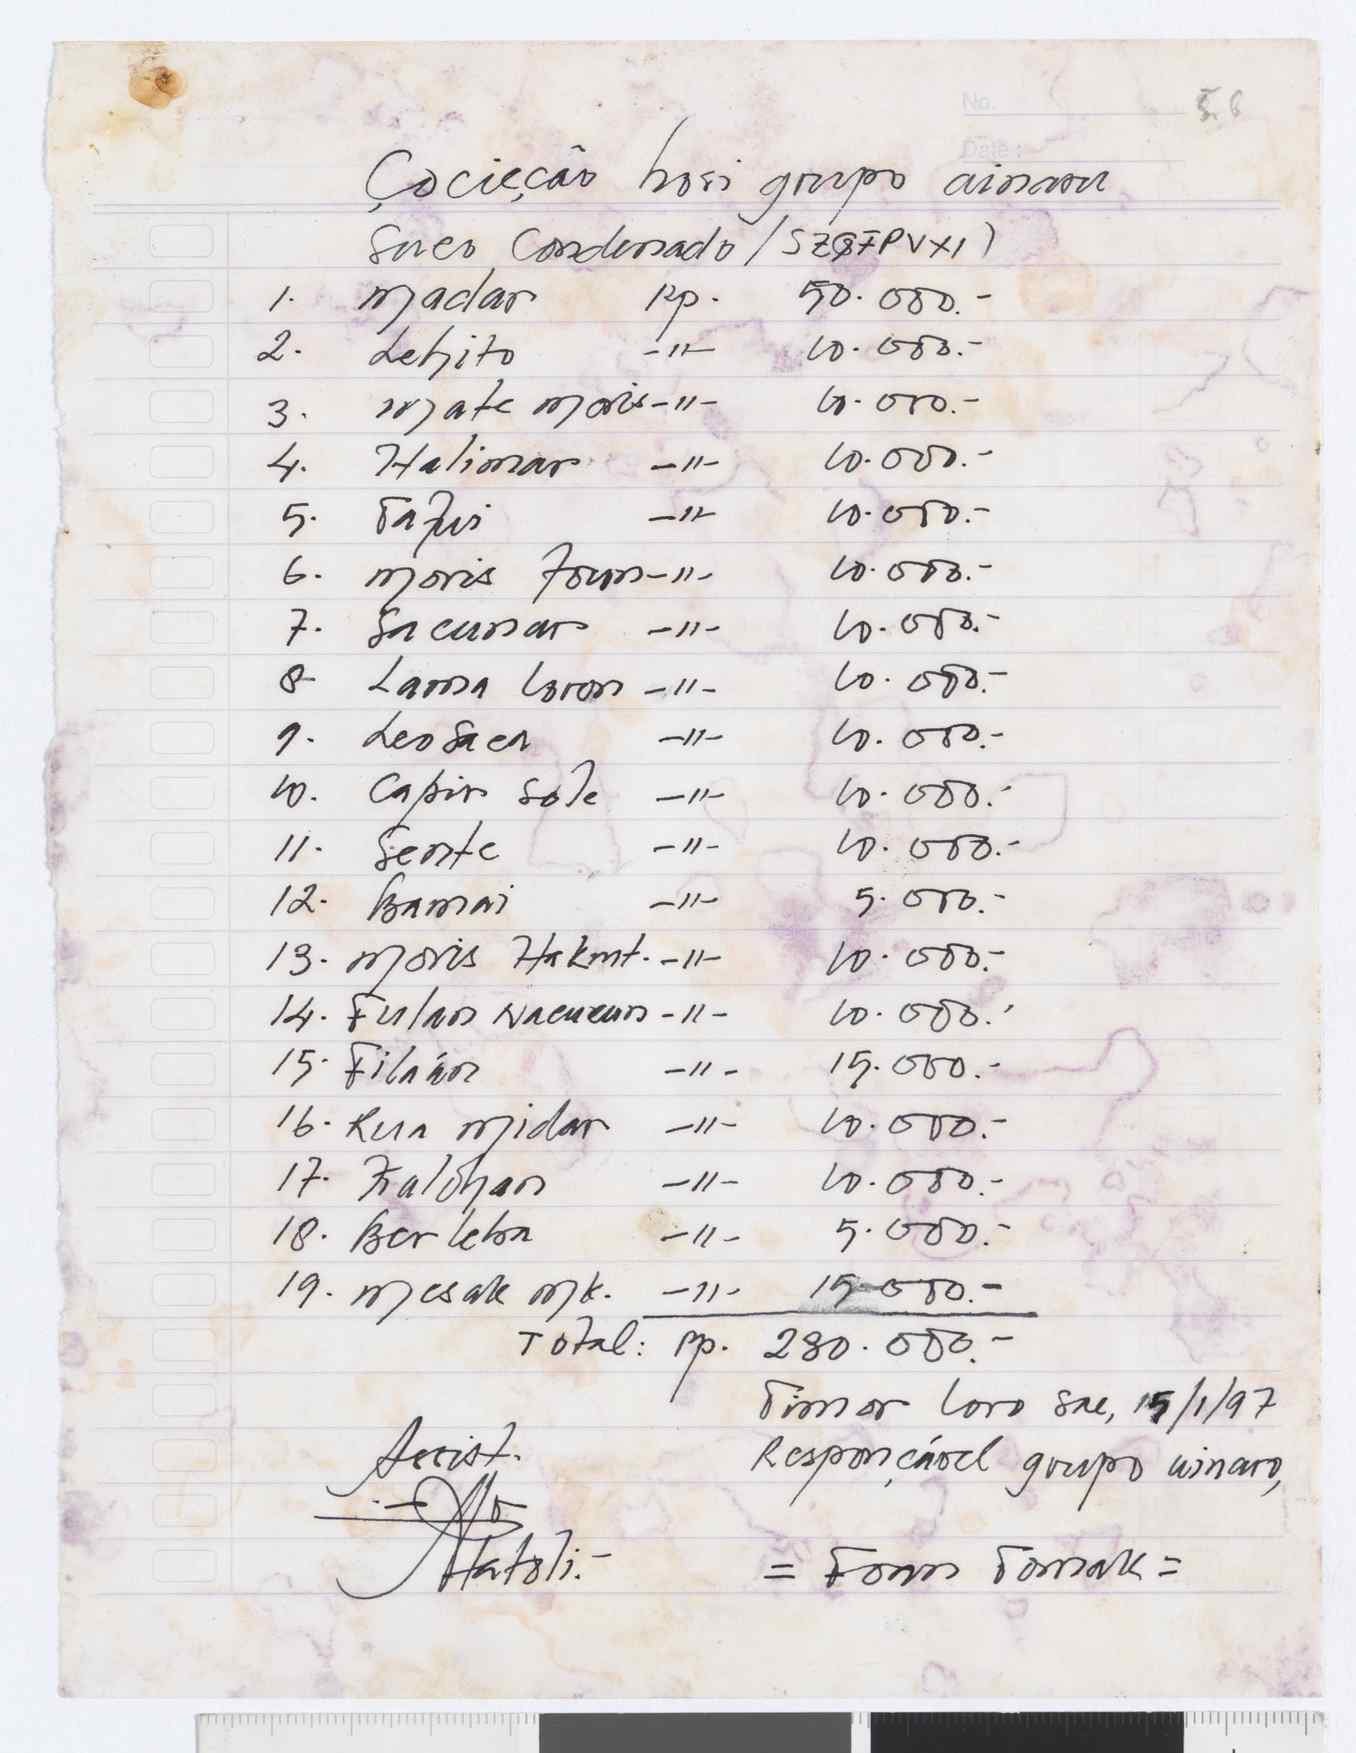 No. 5.6
Date:
Çocieção hosi grupo ainaru
Saco Condensado / SZQFPVXI)
1. Madar Rp. 50.000.-
2. Lehito -"- 10.000.-
3. Mate Moris -"- 10.000.-
4. Halimar -"- 10.000.-
5. Tafui -"- 10.000.-
6. Moris Foun -"- 10.000.-
7. Sacunar -"- 10.000.-
8 Lansa loron -"- 10.000.-
9. Leosaca -"- 10.000.-
10. Capir Sole -"- 10.000.-
11. Sente -"- 10.000.-
12. Bamai -"- 5.000.-
13. Moris Hakmt. -"- 10.000.-
14. Fulan Nacucun -"- 10.000.-
15. Filaán -"- 15.000.-
16. Rua Midar -"- 10.000.-
17. Falohan -"- 10.000.-
18. Ber leba -"- 5.000.-
19. Mesak Mk. -"- 15.000.-
Total: Rp. 230.000.-
Timor Loro Sae, 15/1/97
Assist. Responçável grupo ainaro,
Hatoli.- = Foun Tomak =